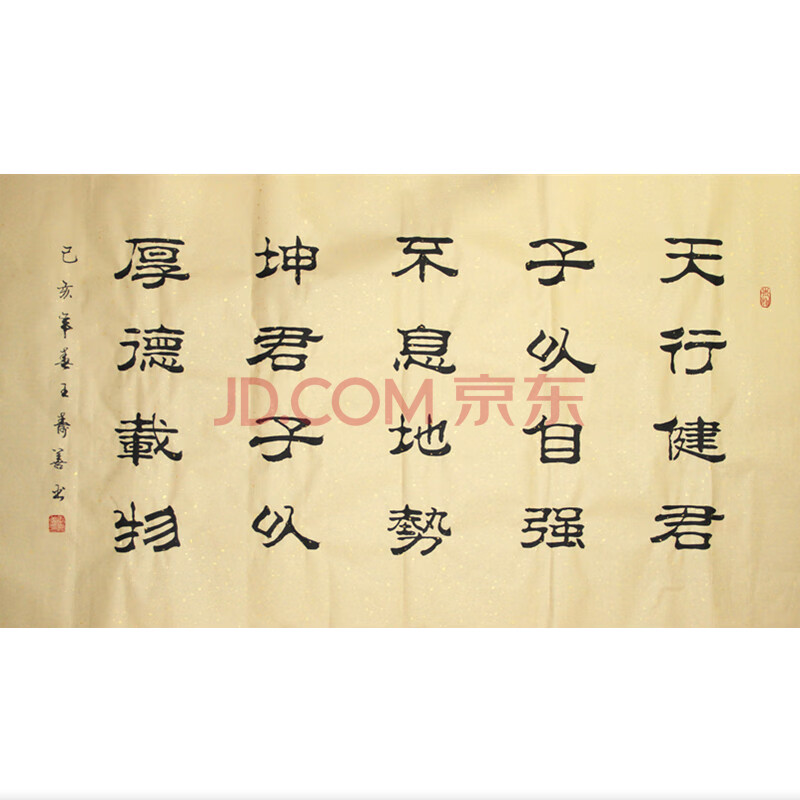 天行健君
子以自强
不息地勢
坤君子以
厚德載物
己亥年春王寿善书
JD.COM 京东